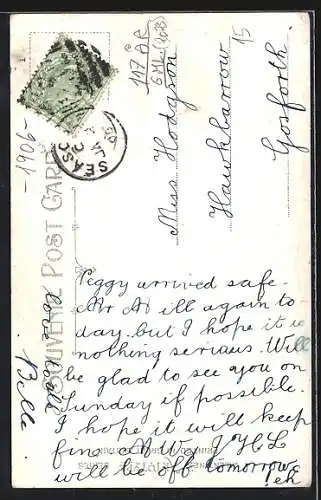 - 1906 -
SOUVENIR POST CARD
SEASC
JA
Miss Hodgson
Hawkbarrow
Gosforth
15
Peggy arrived safe.
Mr A ill again to-
day. but I hope it is
nothing serious. Will
be glad to see you on
Sunday if possible.
I hope it will keep
fine.
will be off tomorrow
Love
Belle.